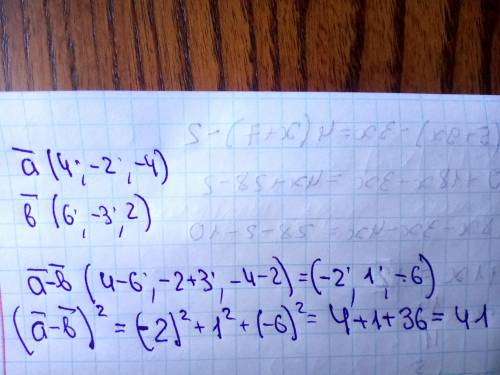 a̅ (4; -2; -4)
b̅ (6; -3; 2)
a̅-b̅ (4-6; -2+3; -4-2)=(-2; 1; -6)
(a̅-b̅)² = (-2)²+1²+(-6)²= 4+1+36=41